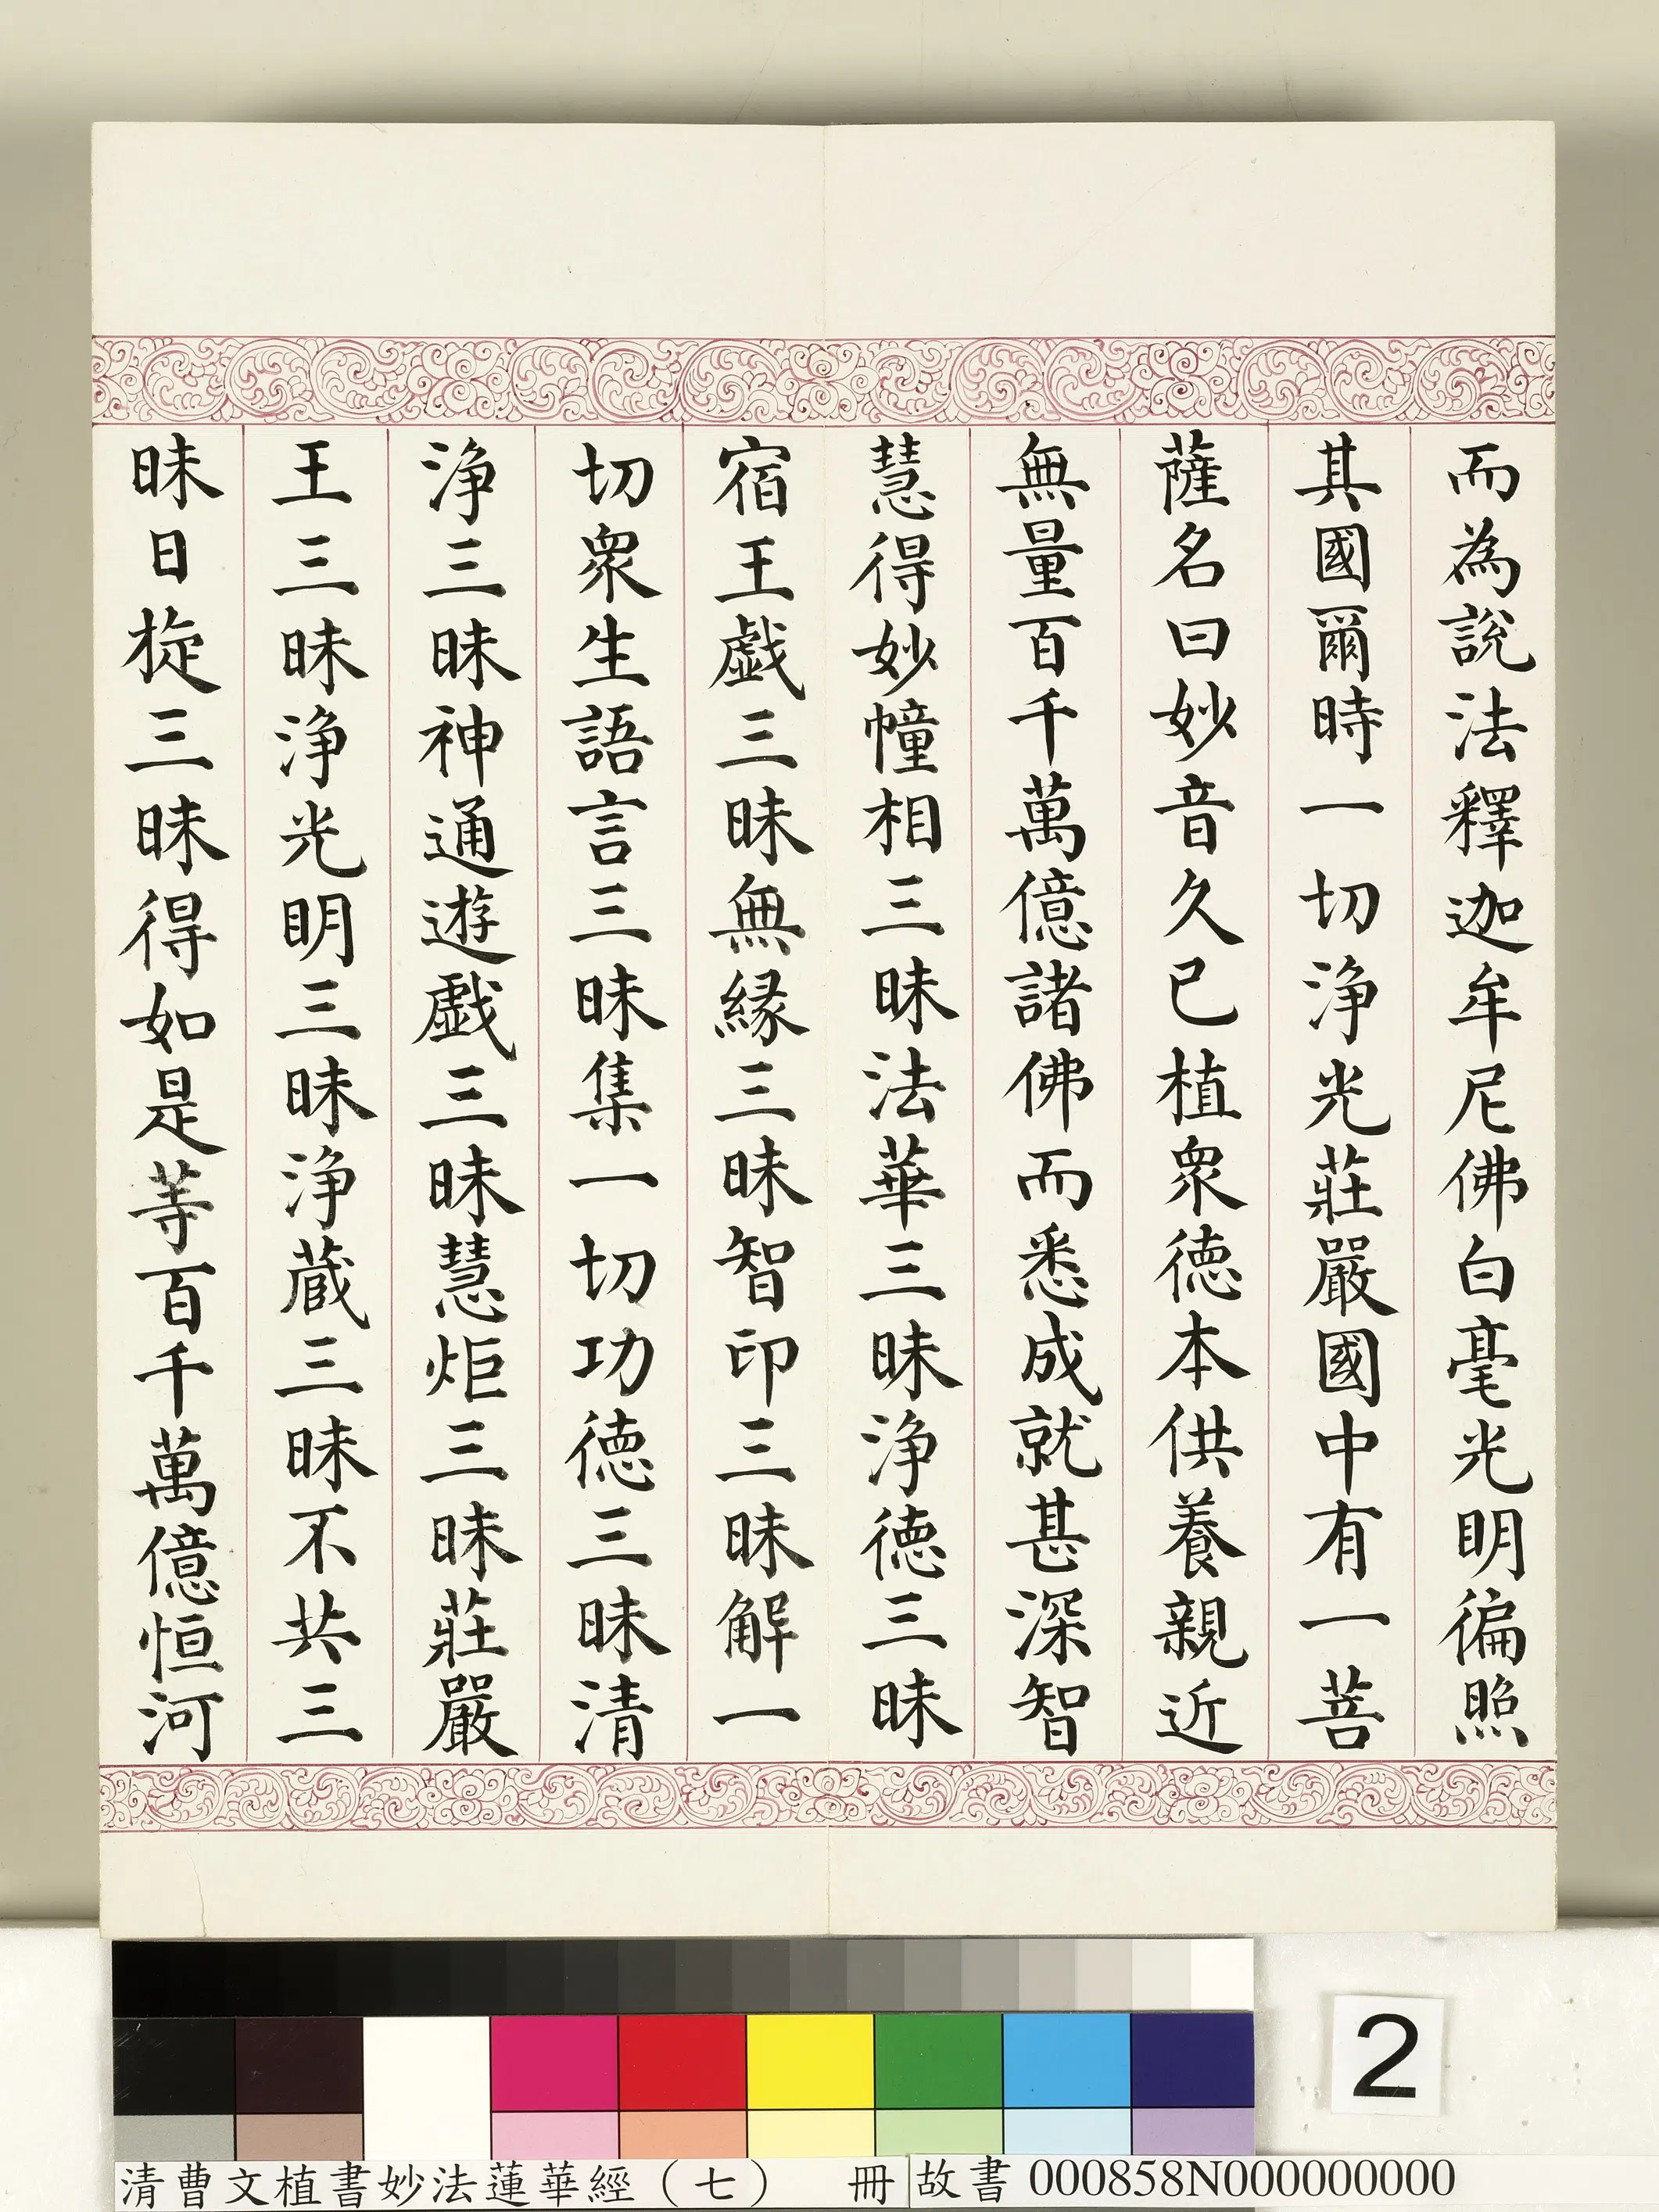 而為說法釋迦牟尼佛白毫光明徧照
其國爾時一切淨光莊嚴國中有一菩
薩名曰妙音久已植眾德本供養親近
無量百千萬億諸佛而悉成就甚深智
慧得妙幢相三昧法華三昧淨德三昧
宿王戲三昧無緣三昧智印三昧解一
切眾生語言三昧集一切功德三昧清
淨三昧神通遊戲三昧慧炬三昧莊嚴
王三昧淨光明三昧淨藏三昧不共三
昧日旋三昧得如是等百千萬億恒河
2
清曹文植書妙法蓮華經(七) 冊
故書 000858N000000000